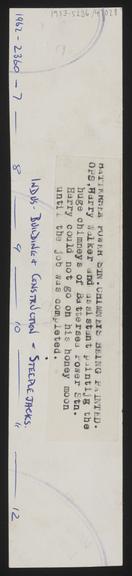 1983-5236/
BATTERSEA POWER STN. CHIMNEYS BEING PAINTED.
OPS. Harry Walker and assistant painting the
huge chimneys of Battersea Power Stn.
Harry could not go on his honey moon
until the job was completed.
INDUS - BUILDING & CONSTRUCTION - STEEPLEJACKS.
1962-2360-7
8
9
10
"
12